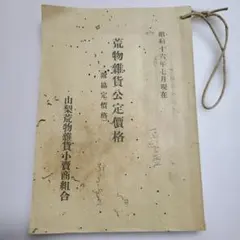 昭和十六年七月現在
荒物雜貨公定價格
協定價格
山梨荒物雜貨小賣商組合